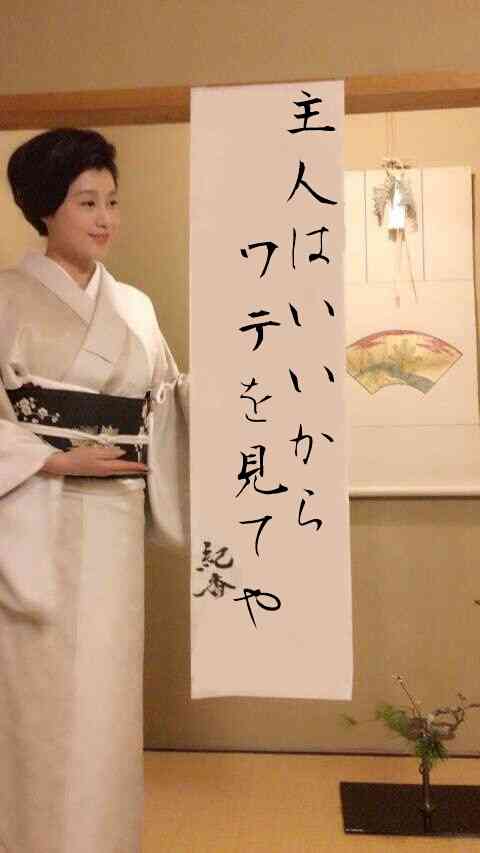 主人はいいから
ワテを見てや
紀香